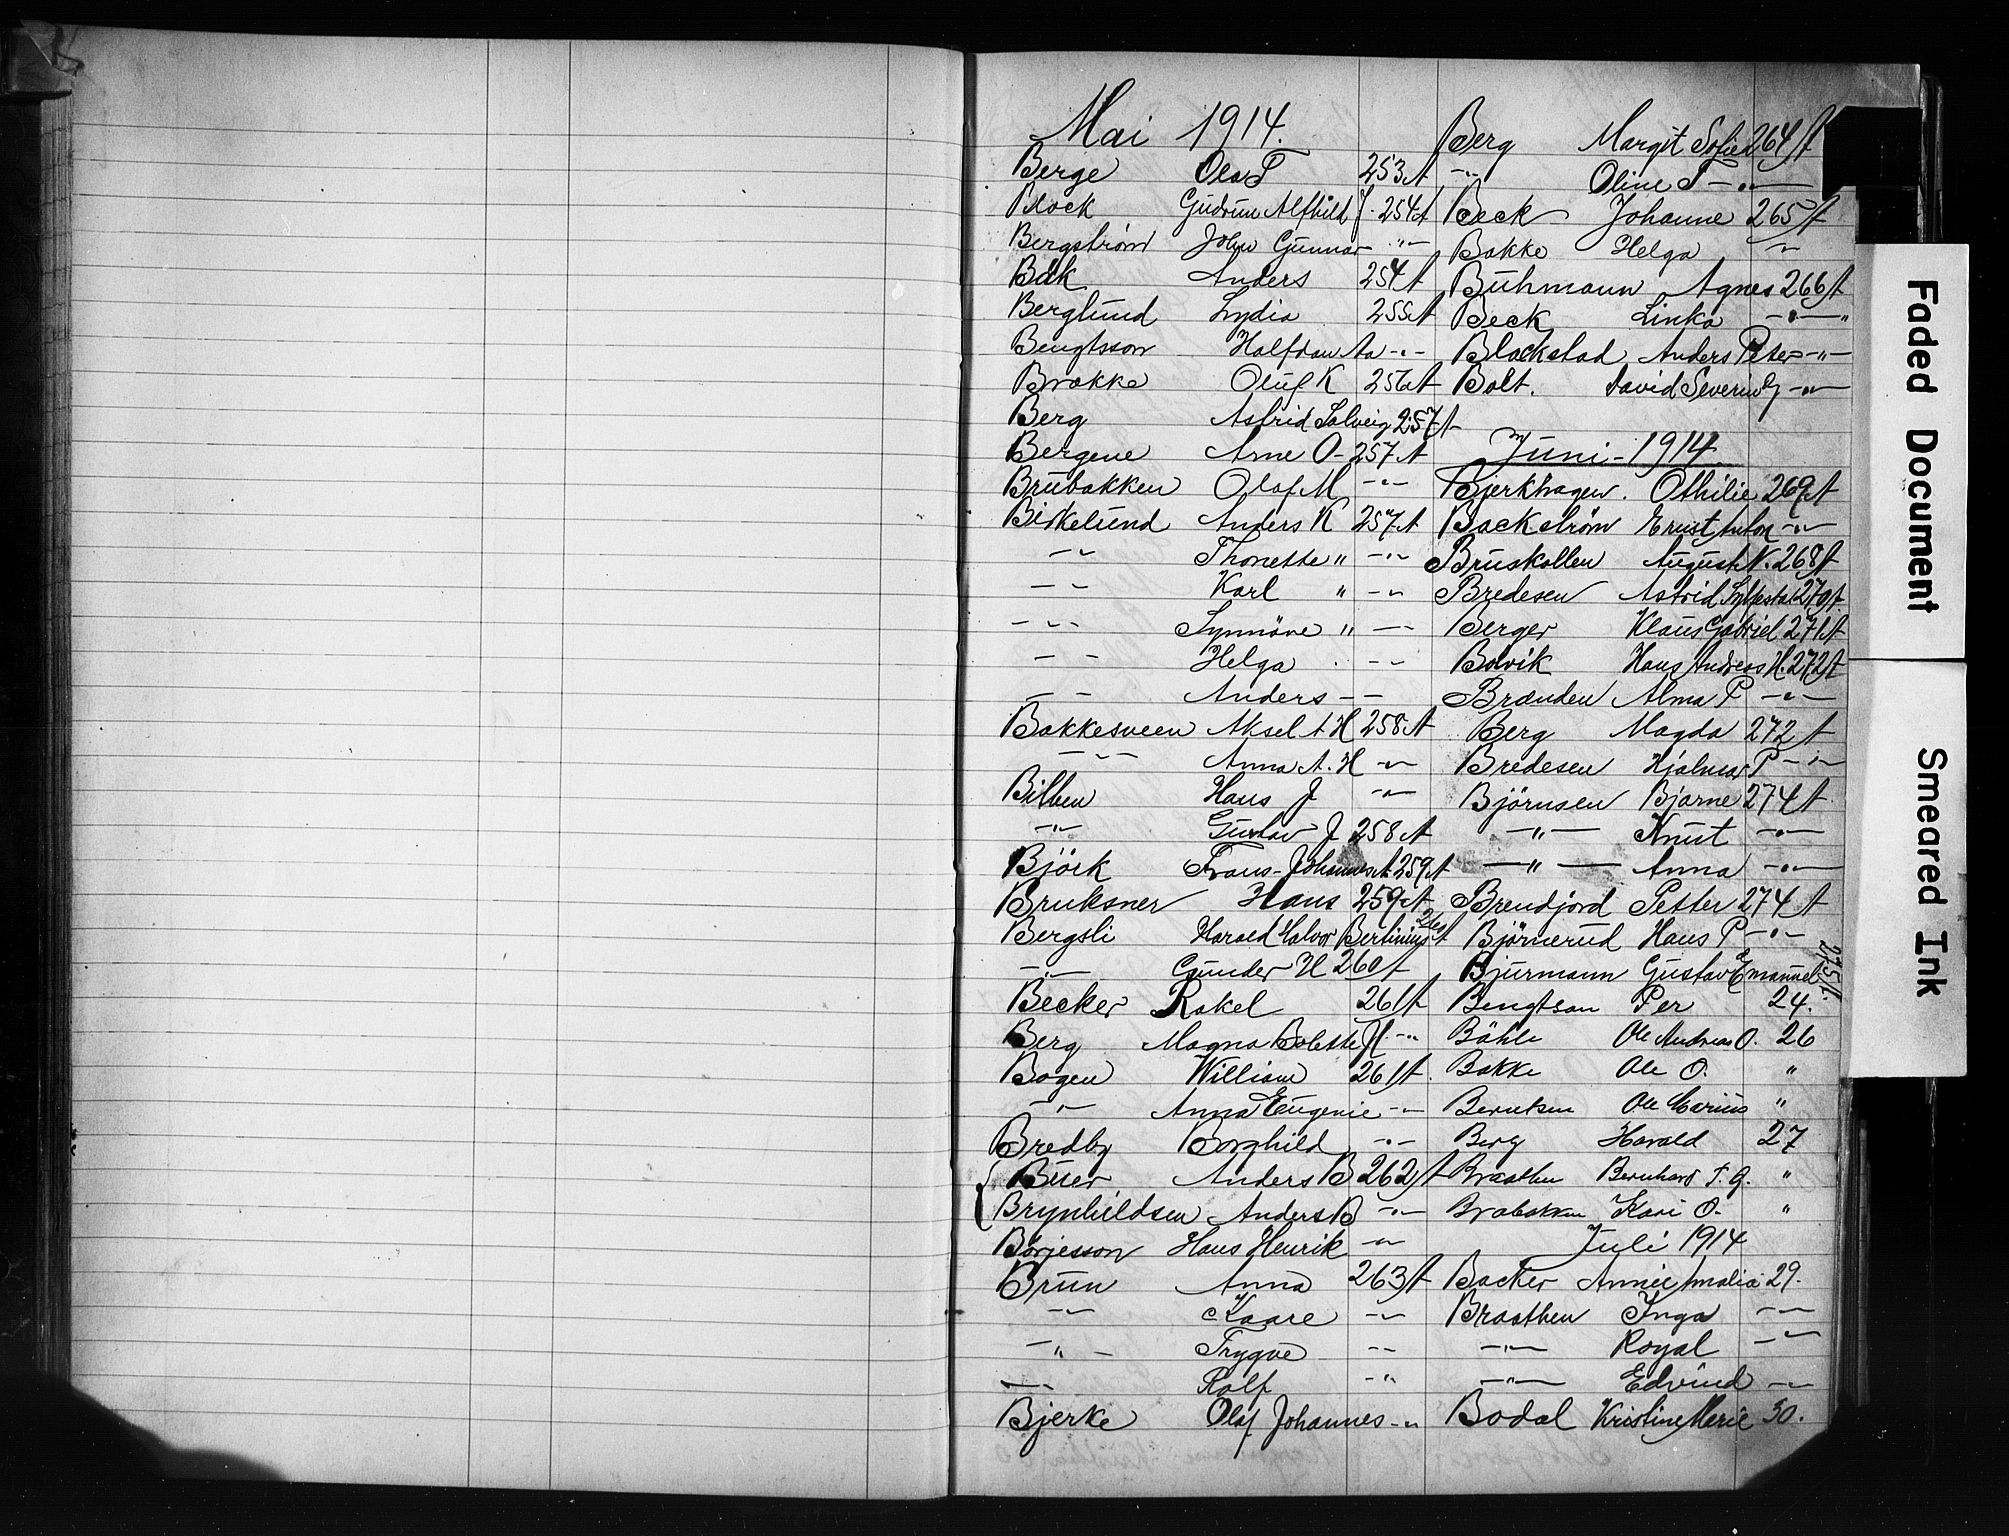 Mai 1914.
Berge Ola T 253 A
Block Gudrun Alfhild J. 254 A
Bergström John Gunnar -"-
Bäk Anders 254 A
Berglund Lydia 255 A
Bengtsson Halfdan Aa -"-
Brakke Oluf K 256 A
Berg Astrid Solveig 257 A
Bergene Arne O - 257 A
Brubakken Olaf M -"-
Birkelund Anders K 257 A
-"- Thonette " -"-
-"- Karl " -"-
-"- Synnöve " -"-
-"- Helga -"-
-"- Anders -"-
Bakkesveen Aksel A H 258 A
-"- Anna A. H -"-
Bilben Hans J -"-
-"- Gustav J 258 A
Björk Frans-Johannes A 259 A
Bruksner Hans 259 A
Bergsli Harald Halvor Bertinius 260 A
-"- Gunder H 260 A
Becker Rakel 261 A
Berg Magna Bolette H. -"-
Bogen William 261 A.
-"- Anna Eugenie -"-
Bredby Borghild -"-
Buer Anders B 262 A
Brynhildsen Anders B -"-
Börjesson Hans Henrik -"-
Brun Anna 263 A
-"- Kaare -"-
-"- Trygve -"-
-"- Rolf -"-
Bjerke Olaf Johannes -"-
Berg Margit Sofie 264 A
-"- Oline T -"-
Beck Johanne 265 A
Bakke Helga -"-
Buhmann Agnes 266 A
Beck Linka -"-
Blackstad Anders Peter -"-
Bolt. David Severin G -"-
Juni - 1914
Bjerkhagen. Othilie 269 A
Backström Ernst Anton -"-
Bruskollen August N. 268 A
Bredesen Astrid 270 A.
Berger Klaus Gabriel 271 A
Bolvik Hans Andreas H. 272 A
Brænden Alma P -"-
Berg Magda 272 A
Bredesen Hjalmar P -"-
Björnsen Bjarne 274 A
-"- Knut -"-
-"- Anna -"-
Brendjord Petter 274 A
Björnerud Hans P -"-
Bjurmann Gustav Emanuel 275 A.
Bengtson Per 24.
Båhle Ole Andreas O. 26
Bakke Ole O. "
Berntsen Ole Marius "
Berg Harald 27
Braathen Bernhard F. G. "
Brobakken Kari O. "
Juli 1914
Backer Annie Amalia 29.
Braathen Inga -"-
-"- Royal -"-
-"- Edvind -"-
Bodal Kristine Marie 30.
Faded Document
Smeared Ink